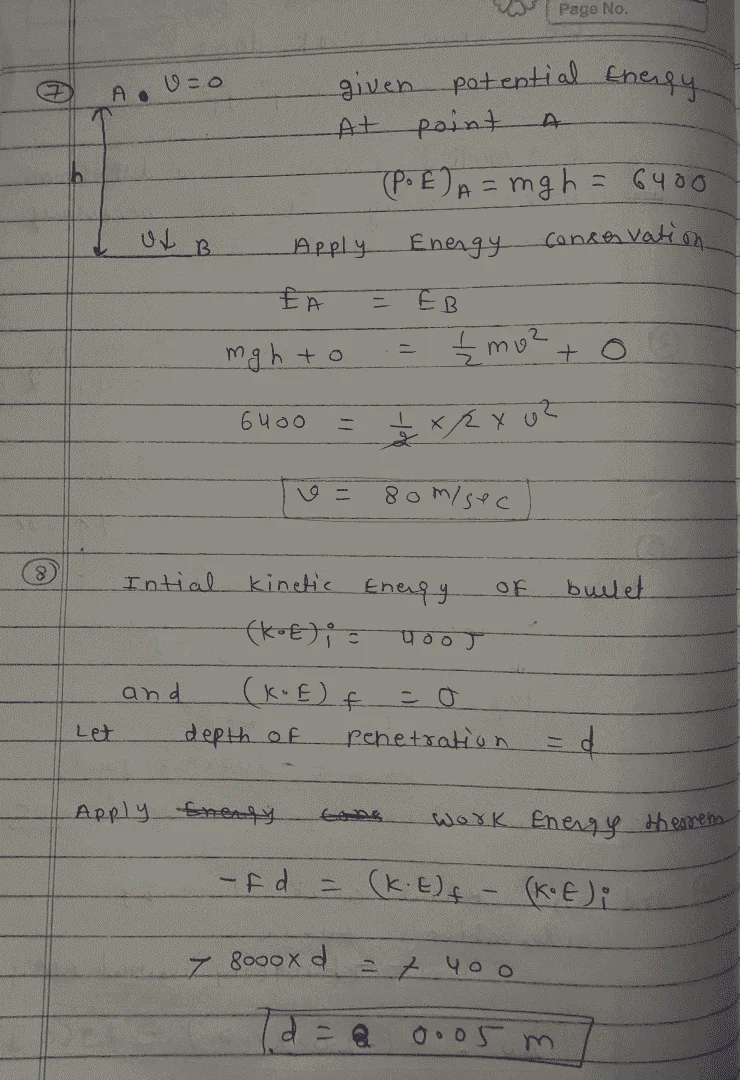 Page No.
⑦ A • v = 0 given potential Energy
At point A
h (P.E)A = mgh = 6400
v↓ B Apply Energy conservation
EA = EB
mgh + 0 = 1/2 mv² + 0
6400 = 1/2 × 2 × v²
v = 80 m/sec
⑧ Intial kinetic Energy OF bullet
(K.E)i = 400J
and (K.E)f = 0
Let depth of penetration = d
Apply Energy cons work Energy theorem
-Fd = (K.E)f - (K.E)i
- 8000 × d = - 400
d = 0.05 m